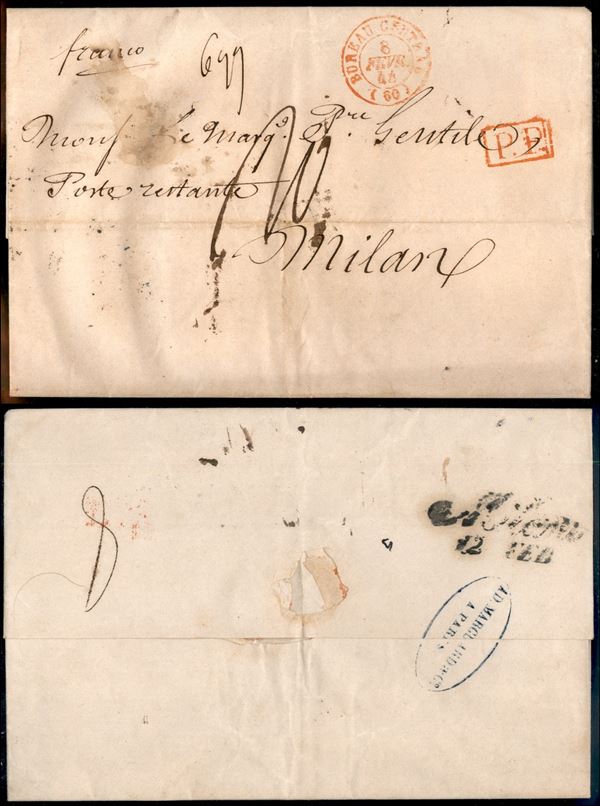 franco
BUREAU CENTRAL
8
FEVR.
44
(60)
Monsr Le Marq. Pre Gentile
P.P.
Poste restante
Milan
8
Milano
12 FEB
AD. MARCUARD & CO
A PARIS